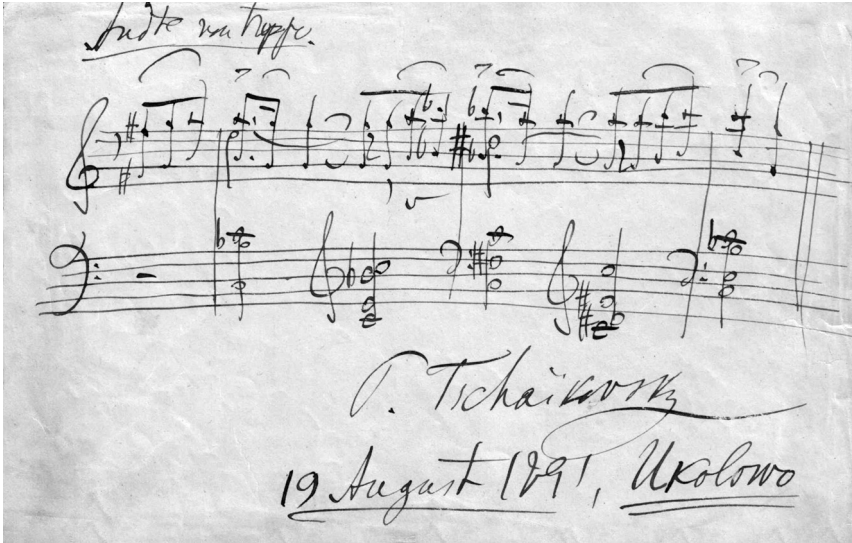 Andte non troppo.
P. Tschaïkovsky
19 August 1891, Ukolowo